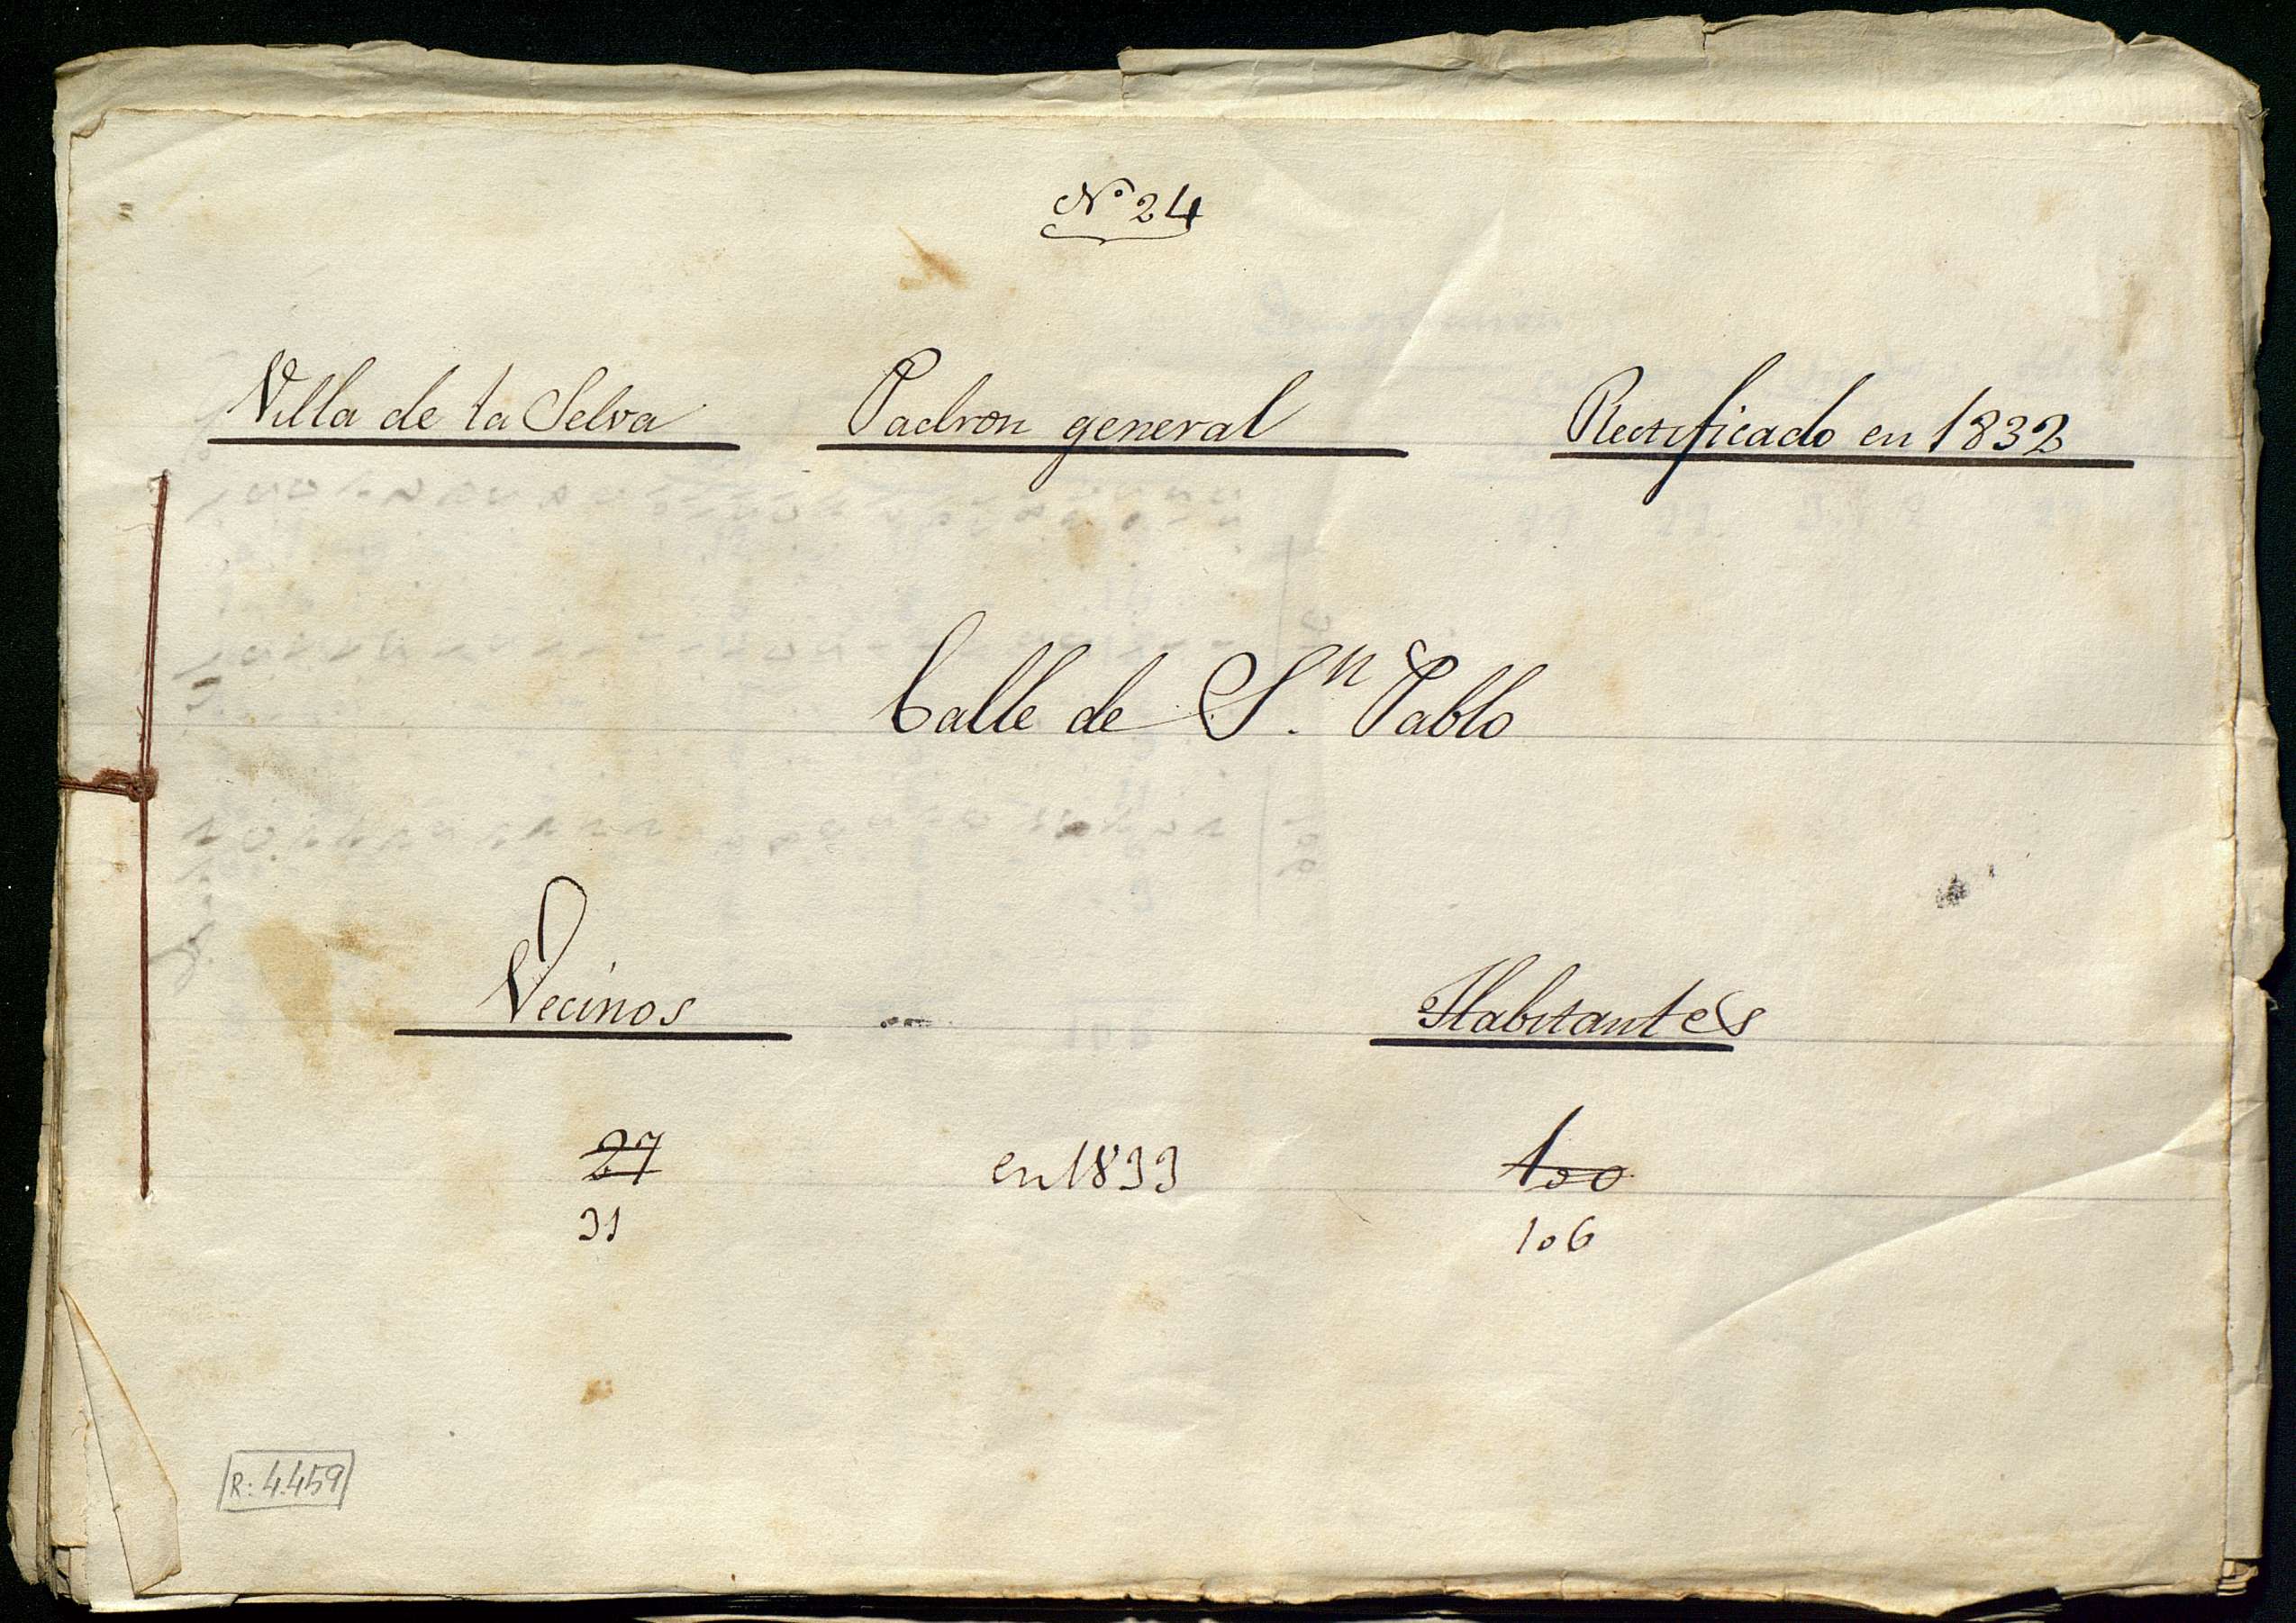 Nº 24
Villa de la Selva Padron general Rectificado en 1832
Calle de S.n Pablo
Vecinos Habitantes
27 en 1833 100
31 106
R: 4.459